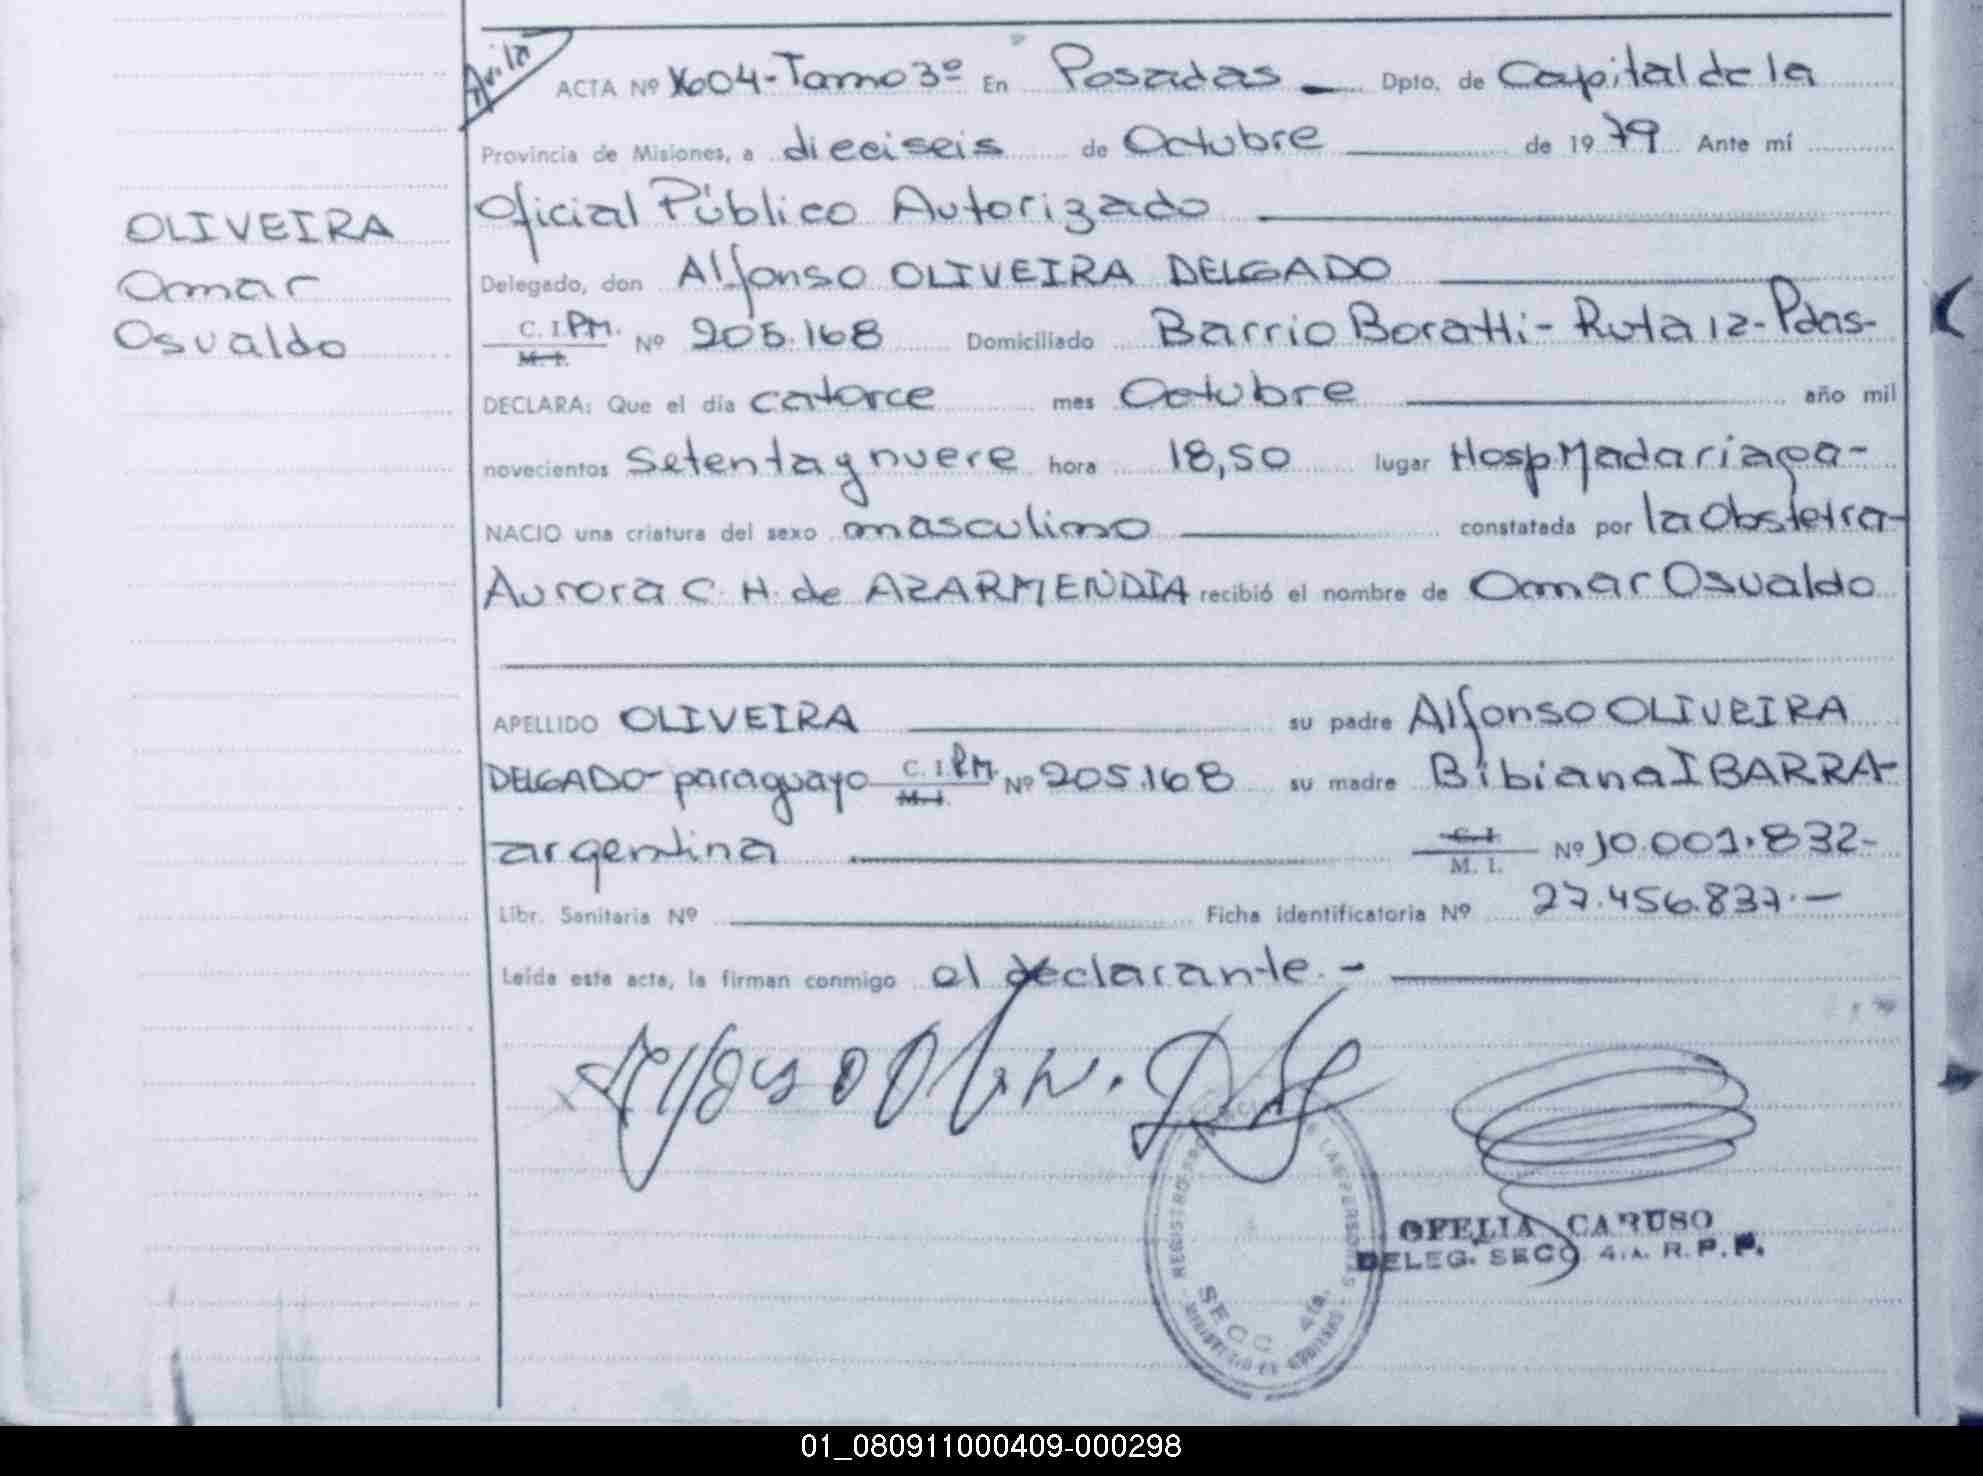 Avila
ACTA Nº 1604-Tomo 3º En Posadas Dpto. de Capital de la
Provincia de Misiones, a dieciseis de Octubre de 1979 Ante mí
OLIVEIRA
Omar
Osvaldo
Oficial Público Autorizado
Delegado, don Alfonso OLIVEIRA DELGADO
C. I. PM.
M. I. Nº 205.168 Domiciliado Barrio Boratti- Ruta 12- Pdas-
DECLARA: Que el día catorce mes Octubre año mil
novecientos setenta y nueve hora 18,50 lugar Hosp Madariaga-
NACIO una criatura del sexo masculino constatada por la Obstetra-
Aurora C. H. de AZARMENDIA recibió el nombre de Omar Osvaldo
APELLIDO OLIVEIRA su padre Alfonso OLIVEIRA
DELGADO- paraguayo C. I. PM. M. I. Nº 205.168 su madre Bibiana IBARRA-
argentina C. I. M. I. Nº 10.001.832-
Libr. Sanitaria Nº Ficha identificatoria Nº 27.456.837.-
Leída esta acta, la firman conmigo el declarante.-
REGISTRO DE LAS PERSONAS
SECC. 4ta.
MINISTERIO DE GOBIERNO
OFELIA CARUSO
DELEG. SECC. 4.A. R. P. P.
01_080911000409-000298